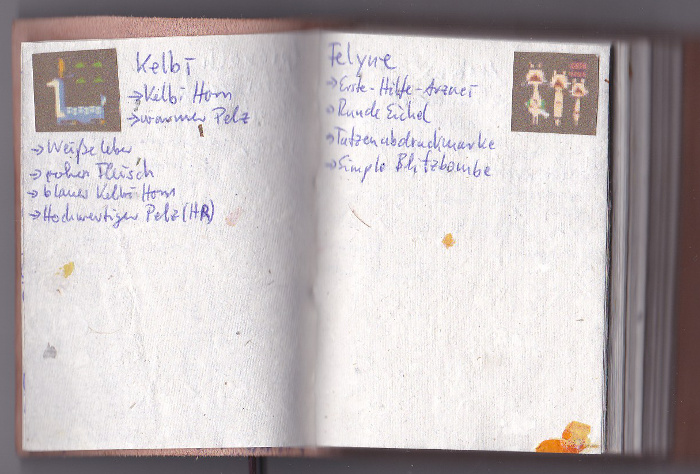 Kelbi
→Kelbi Horn
→warmer Pelz
→Weiße Leber
→rohes Fleisch
→blaues Kelbi Horn
→Hochwertiger Pelz (HR)
Felyne
→Erste-Hilfe-Arznei
→Runde Eichel
→Tatzenabdruckmarke
→Simple Blitzbombe